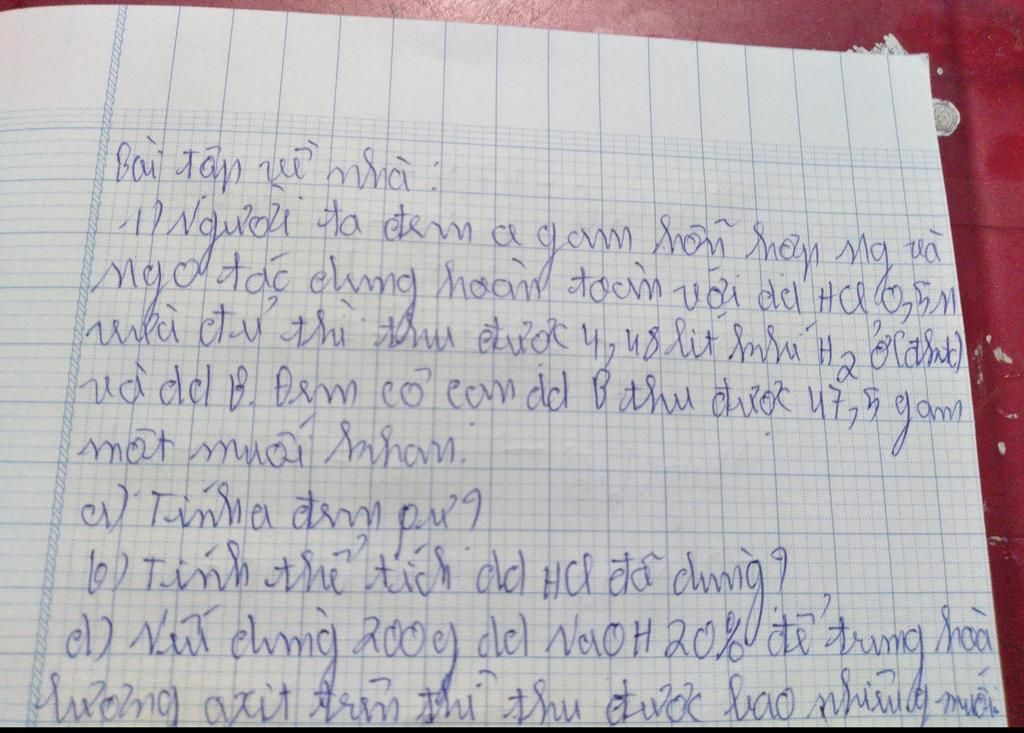 Bài tập về nhà:
1) Người ta đem a gam hỗn hợp Mg và
MgO tác dụng hoàn toàn với dd HCl 0,5M
vừa đủ thì thu được 4,48 lít khí H2 ở (đktc)
và dd B. Đem cô cạn dd B thu được 47,5 gam
một muối khan.
a) Tính a đem pư?
b) Tính thể tích dd HCl đã dùng?
d) Nếu dùng 200g dd NaOH 20% để trung hoà
lượng axit trên thì thu được bao nhiêu g muối